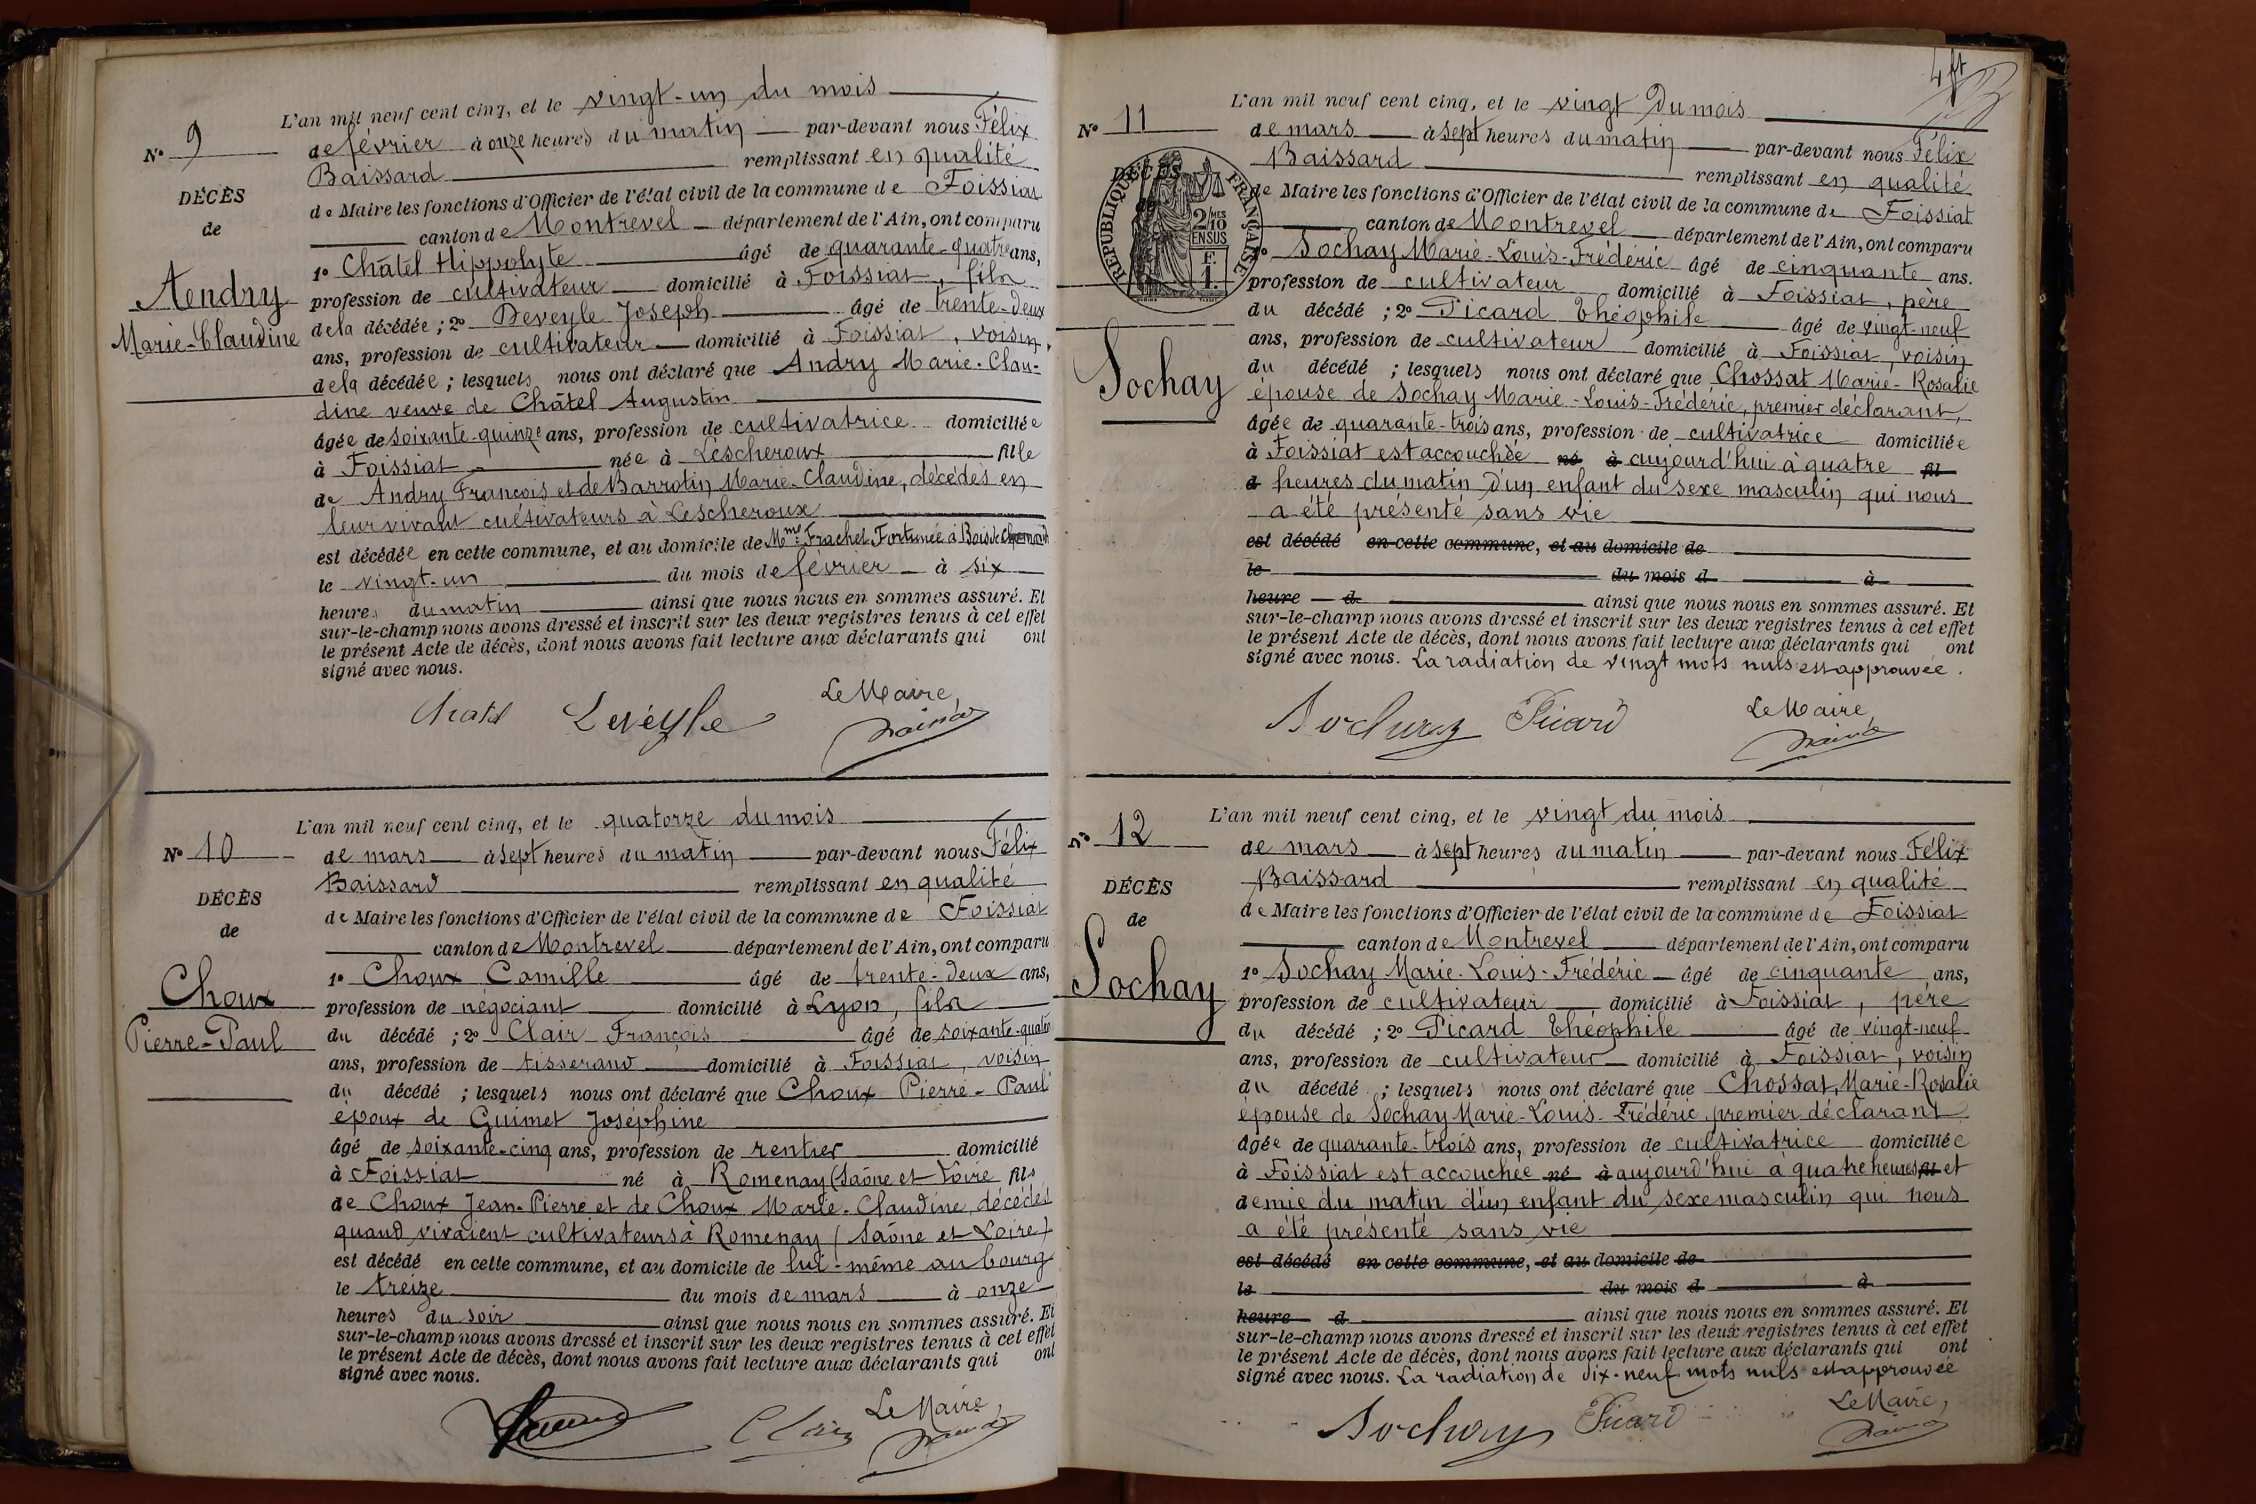 N° 9
DÉCÈS
de
Aendry
Marie-Claudine
L'an mil neuf cent cinq, et le vingt-un du mois
de février à onze heures du matin par-devant nous Félix
Baissard remplissant en qualité
de Maire les fonctions d'Officier de l'état civil de la commune de Foissiat
canton de Montrevel département de l'Ain, ont comparu
1° Châtel Hippolyte âgé de quarante-quatre ans,
profession de cultivateur domicilié à Foissiat, fils
de la décédée ; 2° Deveyle Joseph âgé de trente-deux
ans, profession de cultivateur domicilié à Foissiat, voisin,
de la décédée ; lesquels nous ont déclaré que Andry Marie-Clau-
dine veuve de Châtel Augustin
âgée de soixante-quinze ans, profession de cultivatrice domiciliée
à Foissiat née à Lescheroux fille
de Andry François et de Barrotin Marie-Claudine, décédés en
leur vivant cultivateurs à Lescheroux
est décédée en cette commune, et au domicile de Mme Frachet Fortunée à Bois de
le vingt-un du mois de février à six
heures du matin ainsi que nous nous en sommes assuré. Et
sur-le-champ nous avons dressé et inscrit sur les deux registres tenus à cet effet
le présent Acte de décès, dont nous avons fait lecture aux déclarants qui ont
signé avec nous.
Le Maire,
Chatel Deveyle
N° 10
DÉCÈS
de
Choux
Pierre-Paul
L'an mil neuf cent cinq, et le quatorze du mois
de mars à sept heures du matin par-devant nous Félix
Baissard remplissant en qualité
de Maire les fonctions d'Officier de l'état civil de la commune de Foissiat
canton de Montrevel département de l'Ain, ont comparu
1° Choux Camille âgé de trente-deux ans,
profession de négociant domicilié à Lyon, fils
du décédé ; 2° Clair François âgé de soixante-quatre
ans, profession de tisserand domicilié à Foissiat, voisin
du décédé ; lesquels nous ont déclaré que Choux Pierre-Paul
époux de Guimet Joséphine
âgé de soixante-cinq ans, profession de rentier domicilié
à Foissiat né à Romenay (Saône et Loire fils
de Choux Jean-Pierre et de Choux Marie-Claudine, décédés
quand vivaient cultivateurs à Romenay (Saône et Loire)
est décédé en cette commune, et au domicile de lui-même au bourg
le treize du mois de mars à onze
heures du soir ainsi que nous nous en sommes assuré. Et
sur-le-champ nous avons dressé et inscrit sur les deux registres tenus à cet effet
le présent Acte de décès, dont nous avons fait lecture aux déclarants qui ont
signé avec nous.
Le Maire,
Clair
N° 11
DÉCÈS
RÉPUBLIQUE FRANÇAISE
2/10MES
EN SUS
F.
1.
Sochay
L'an mil neuf cent cinq, et le vingt du mois
de mars à sept heures du matin par-devant nous Félix
Baissard remplissant en qualité
de Maire les fonctions d'Officier de l'état civil de la commune de Foissiat
canton de Montrevel département de l'Ain, ont comparu
1° Sochay Marie-Louis-Frédéric âgé de cinquante ans.
profession de cultivateur domicilié à Foissiat, père
du décédé ; 2° Picard Théophile âgé de vingt-neuf
ans, profession de cultivateur domicilié à Foissiat, voisin
du décédé ; lesquels nous ont déclaré que Chossat Marie-Rosalie
épouse de Sochay Marie-Louis-Frédéric, premier déclarant,
âgée de quarante-trois ans, profession de cultivatrice domiciliée
à Foissiat est accouchée né à aujourd'hui à quatre fil
d heures du matin d'un enfant du sexe masculin qui nous
a été présenté sans vie
est décédé en cette commune, et au domicile de
le du mois d à
heure d ainsi que nous nous en sommes assuré. Et
sur-le-champ nous avons dressé et inscrit sur les deux registres tenus à cet effet
le présent Acte de décès, dont nous avons fait lecture aux déclarants qui ont
signé avec nous. La radiation de vingt mots nuls est approuvée.
Le Maire,
Sochay Picard
N° 12
DÉCÈS
de
Sochay
L'an mil neuf cent cinq, et le vingt du mois
de mars à sept heures du matin par-devant nous Félix
Baissard remplissant en qualité
de Maire les fonctions d'Officier de l'état civil de la commune de Foissiat
canton de Montrevel département de l'Ain, ont comparu
1° Sochay Marie-Louis-Frédéric âgé de cinquante ans,
profession de cultivateur domicilié à Foissiat, père
du décédé ; 2° Picard Théophile âgé de vingt-neuf
ans, profession de cultivateur domicilié à Foissiat, voisin
du décédé ; lesquels nous ont déclaré que Chossat, Marie-Rosalie
épouse de Sochay Marie-Louis-Frédéric, premier déclarant
âgée de quarante-trois ans, profession de cultivatrice domiciliée
à Foissiat est accouchée né à aujourd'hui à quatre heures fil et
demie du matin d'un enfant du sexe masculin qui nous
a été présenté sans vie
est décédé en cette commune, et au domicile de
le du mois d à
heure d ainsi que nous nous en sommes assuré. Et
sur-le-champ nous avons dressé et inscrit sur les deux registres tenus à cet effet
le présent Acte de décès, dont nous avons fait lecture aux déclarants qui ont
signé avec nous. La radiation de dix-neuf mots nuls est approuvée
Le Maire,
Sochay Picard